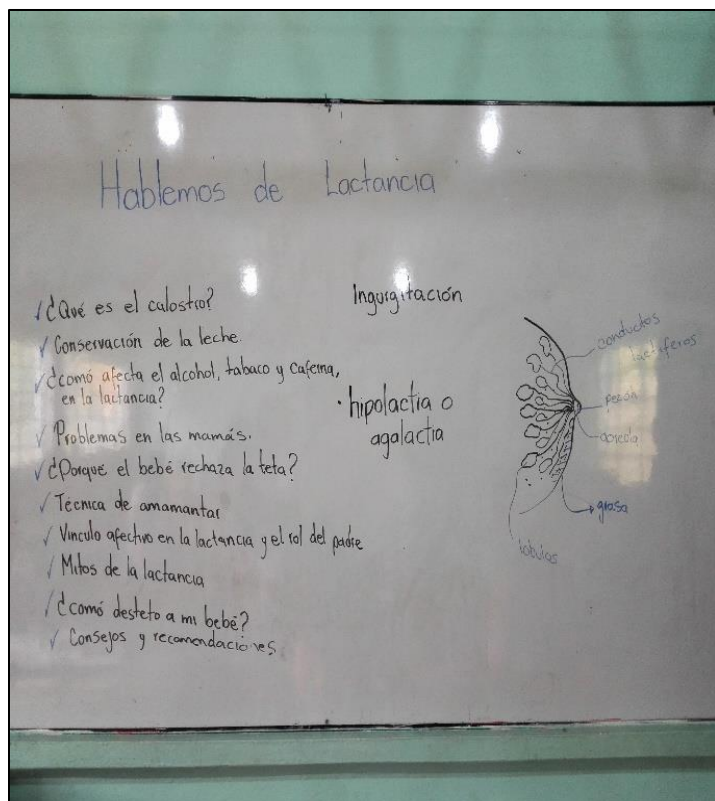 Hablemos de Lactancia
✓ ¿Qué es el calostro?
✓ Conservación de la leche.
✓ ¿comó afecta el alcohol, tabaco y cafeína,
en la lactancia?
✓ Problemas en las mamás.
✓ ¿Porqué el bebé rechaza la teta?
✓ Técnica de amamantar
✓ Vinculo afectivo en la lactancia y el rol del padre
✓ Mitos de la lactancia
✓ ¿comó desteto a mi bebé?
✓ Consejos y recomendaciones
Ingurgitación
· hipolactia o
agalactia
conductos
lactíferos
pezón
areola
grasa
lobulos